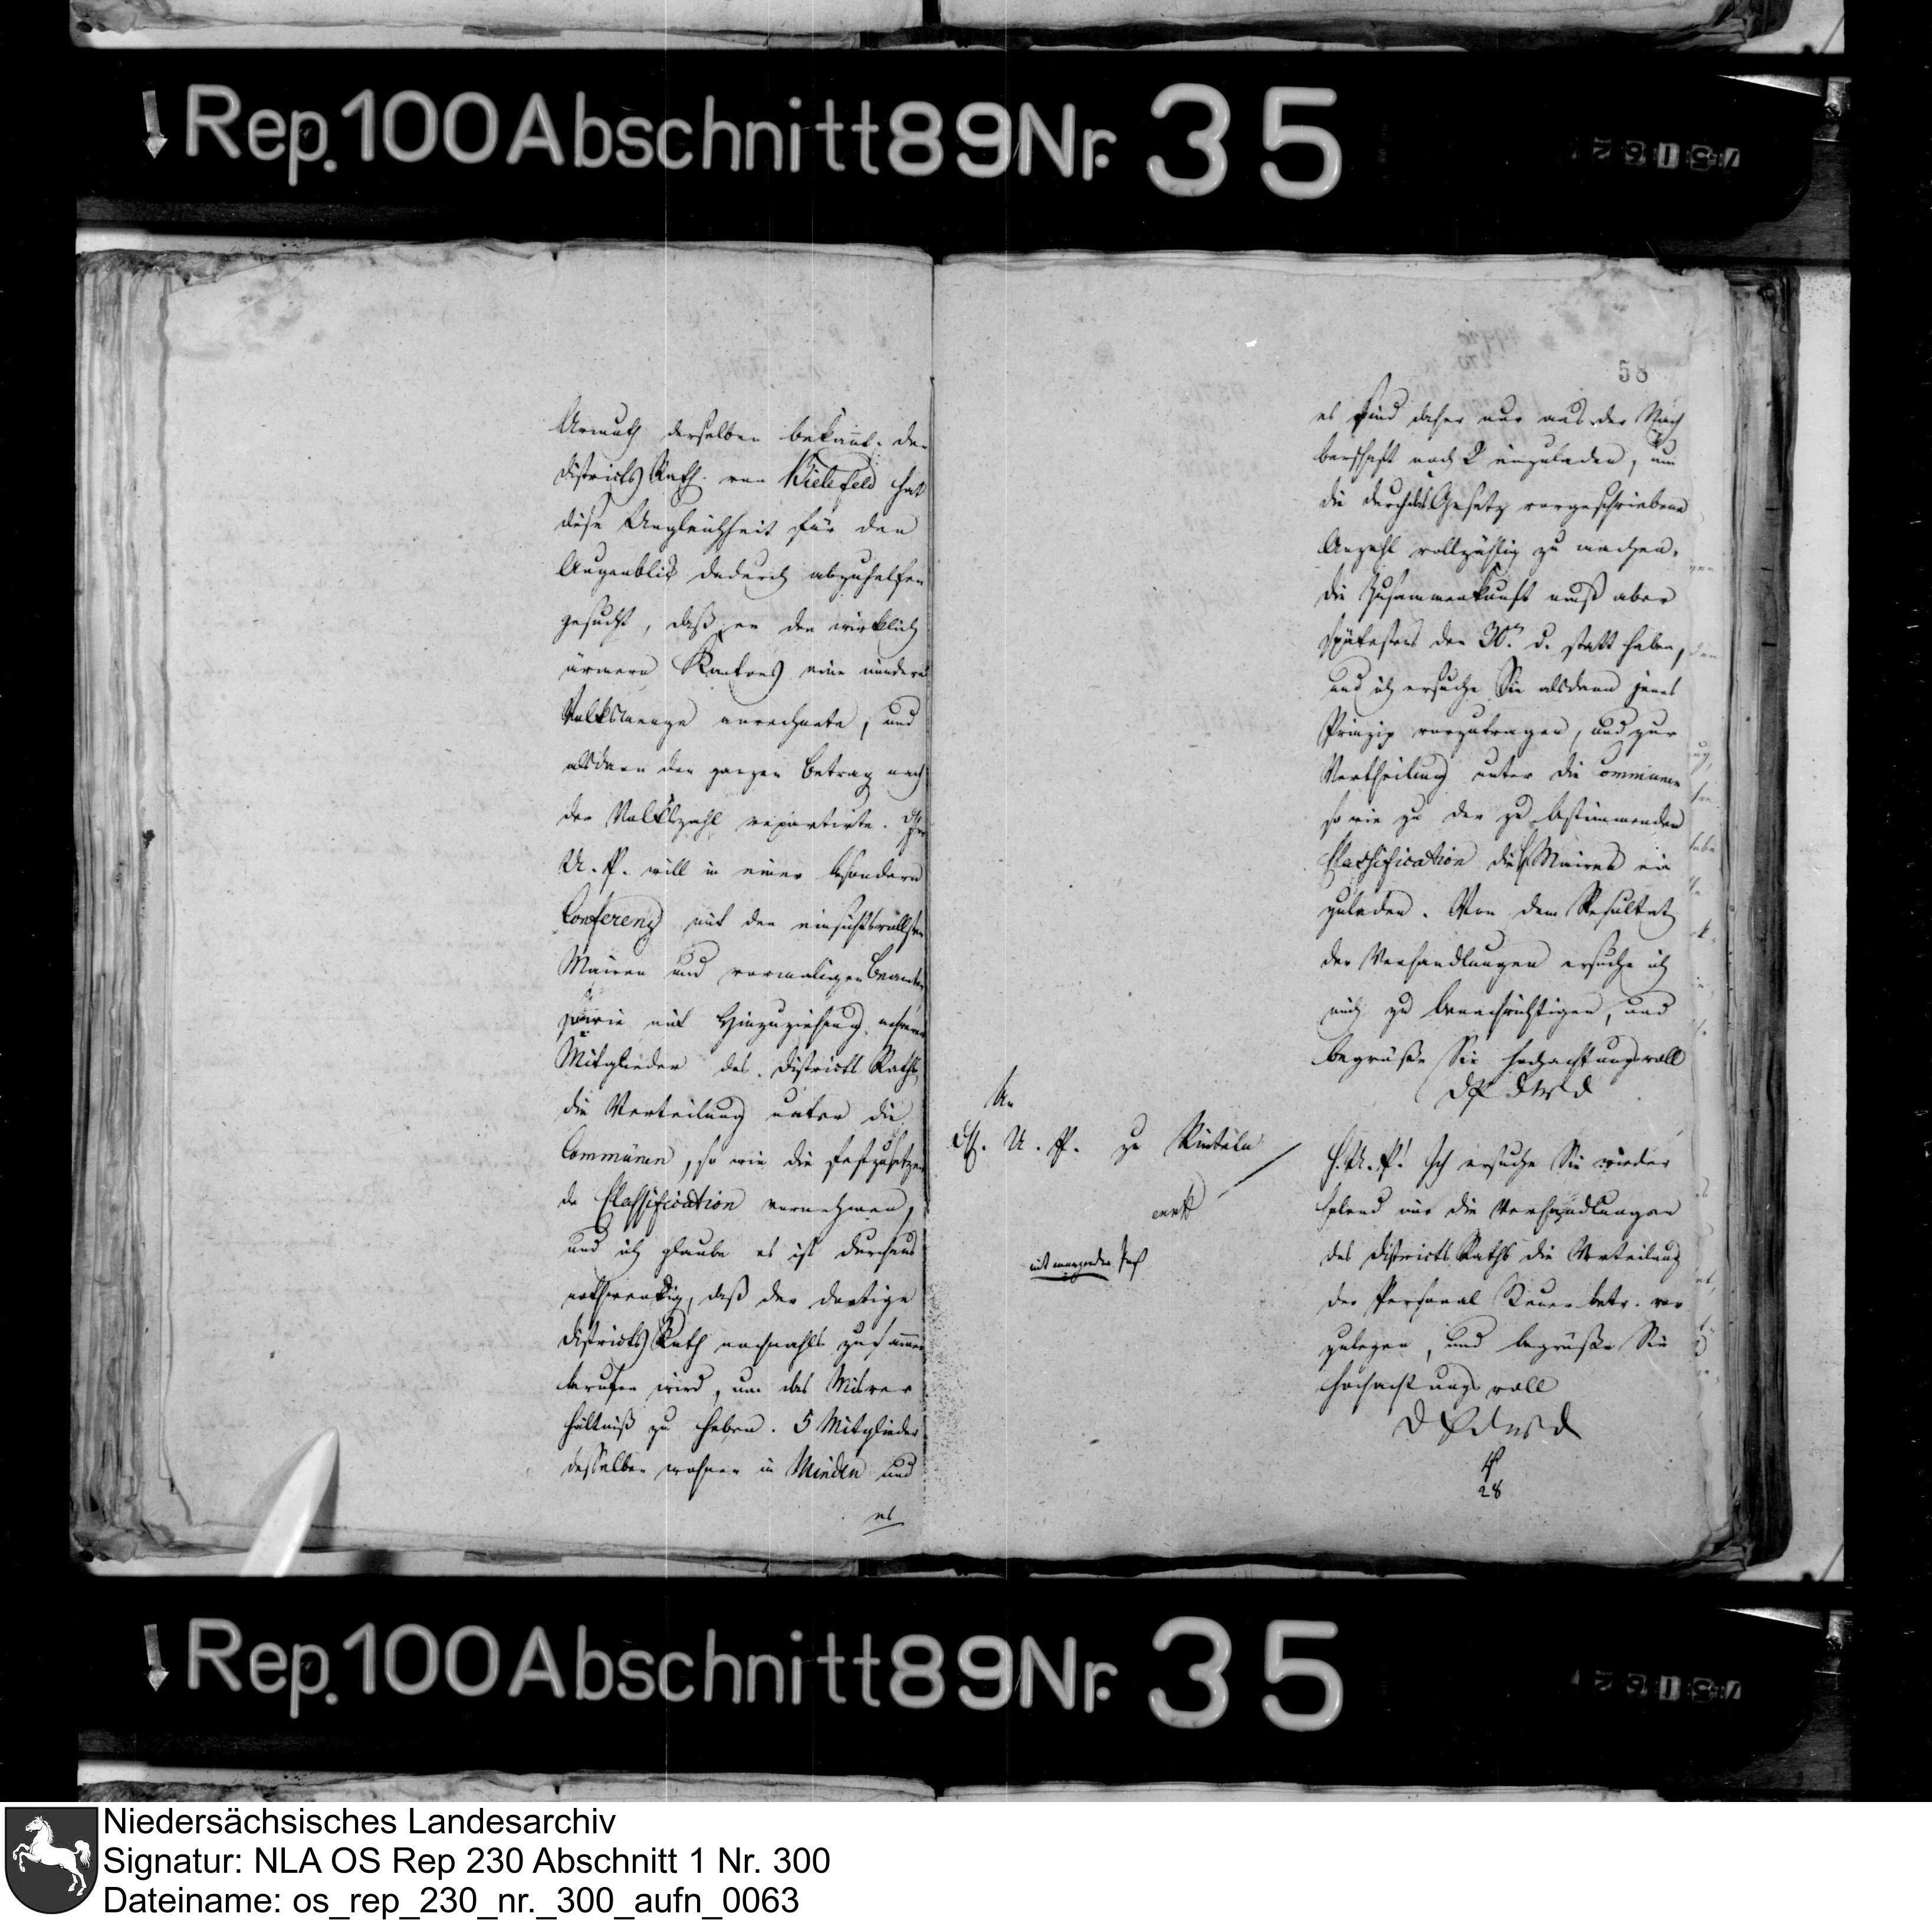 Rep. 100 Abschnitt 89 Nr. 35
Armuth derselben bekannt. der
Districts Rath von Bielefeld hat
diese Ungleichheit für den
Augenblick dadurch abzuhelfen
gesucht, daß er den wirklich
ärmern Kantons eine mindere
Volksmenge anrechnete, und
alsdann den ganzen Betrag nach
der Volkszahl repartirte. Der
U. P. will in einer besondern
Conferenz mit den einsichtsvollsten
Mairen und vormaligen Beamten
sowie mit Hinzuziehung mehrerer
Mitglieder des Districts Raths
die Verteilung unter die
Communen, so wie die festzusetzen
de Classification vornehmen,
und ich glaube es ist durchaus
nothwendig, daß der dortige
Districts Rath nochmahls zusammen
berufen wird, um das Misver
hältniß zu heben. 5 Mitglieder
desselben wohnen in Minden und
es
58
es sind daher nur aus der Nach
barschaft noch 2 einzuladen, um
die durch das Gesetz vorgeschriebene
Anzahl vollzählig zu machen.
die Zusammenkunft muß aber
spätestens den 30n. d. statt haben,
und ich ersuche Sie alsdann jenes
Prinzip vorzutragen, und zur
Vertheilung unter die Communen
so wie zu der zu bestimmenden
Classification die Maires ein
zuladen. Von dem Resultat
der Verhandlungen ersuche ich
mich zu benachrichtigen, und
begrüße Sie hochachtungsvoll
D P d W D
An
H. U. P. zu Rinteln
mit morgender Post
H. U. P! Ich ersuche Sie wieder
holend mir die Verhandlungen
des Districts Raths die Verteilung
der Personal Steuer betr. vor
zulegen, und begrüße Sie
hochachtungsvoll
D P d W D
28
Rep. 100 Abschnitt 89 Nr. 35
Niedersächsisches Landesarchiv
Signatur: NLA OS Rep 230 Abschnitt 1 Nr. 300
Dateiname: os_rep_230_nr._300_aufn_0063